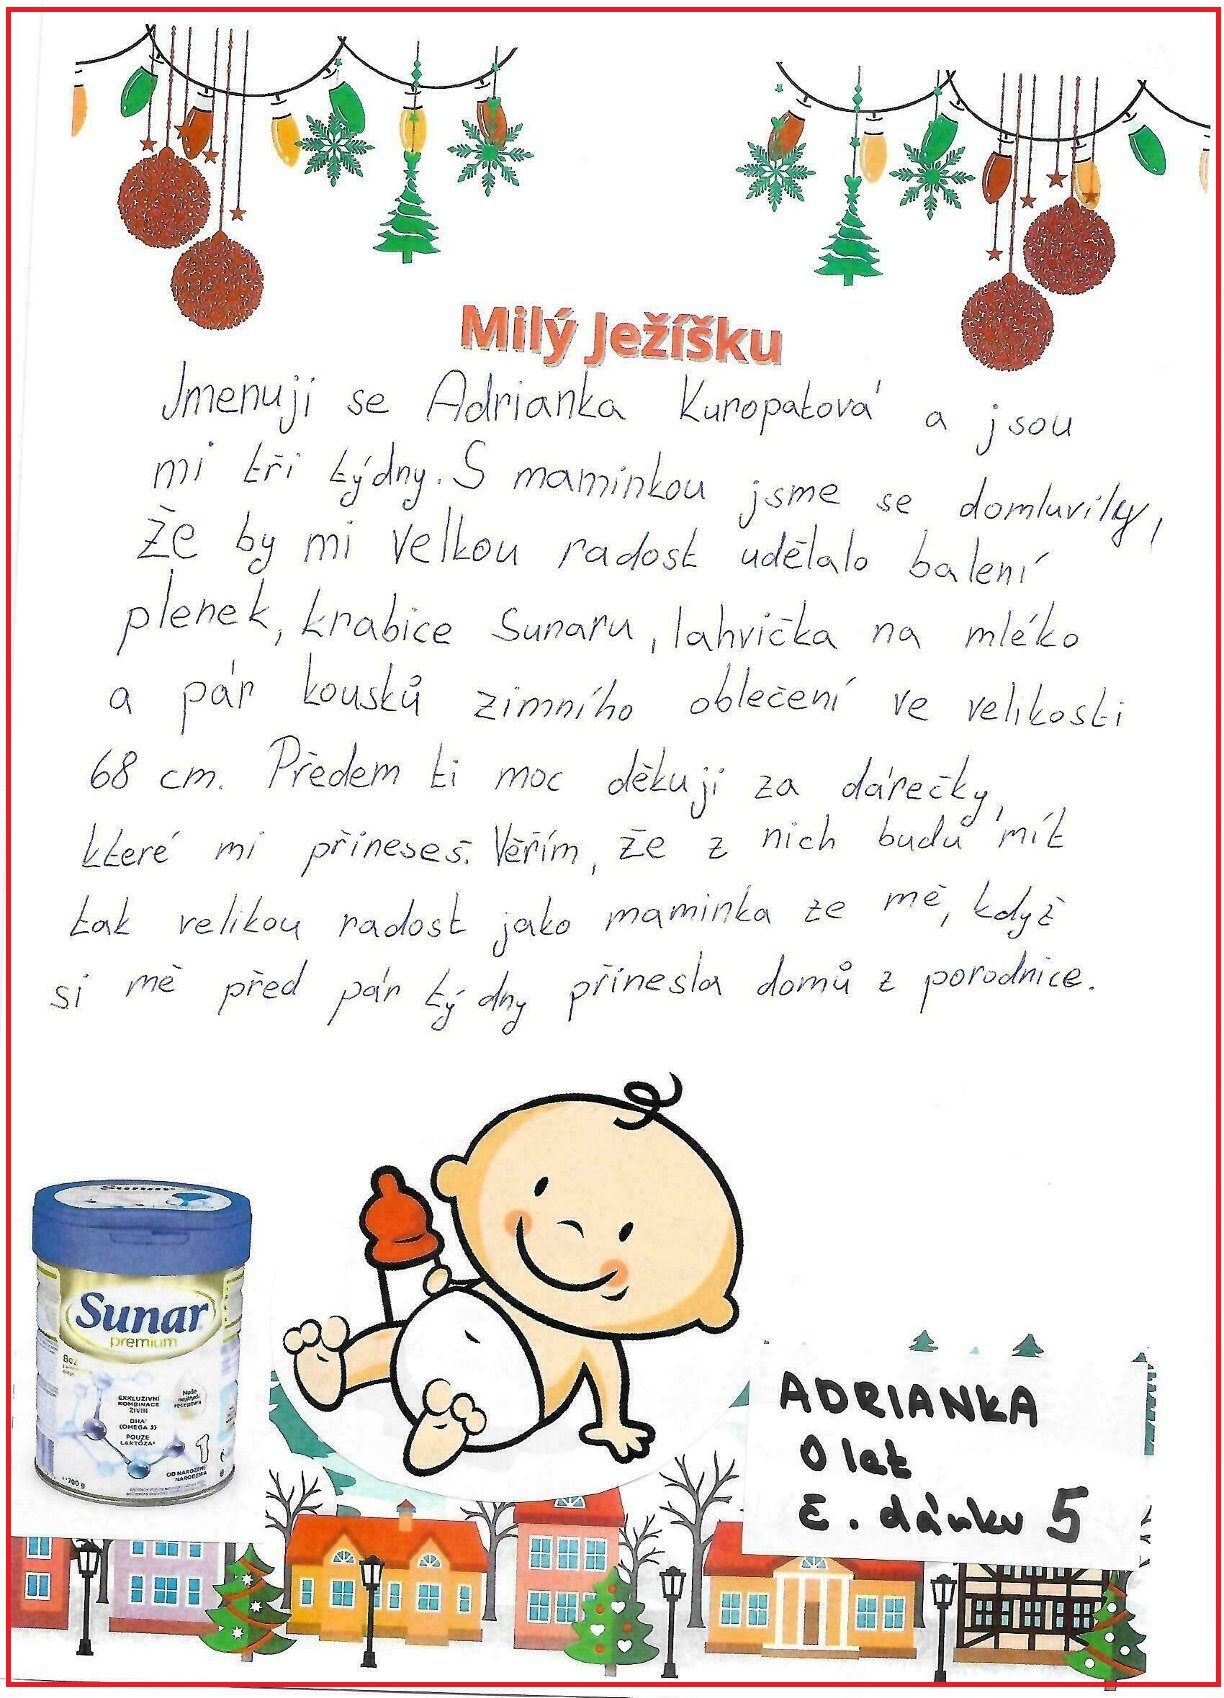 Milý Ježíšku
Jmenuji se Adrianka Kuropatová a jsou
mi tři týdny. S maminkou jsme se domluvily,
že by mi velkou radost udělalo balení
plenek, krabice Sunaru, lahvička na mléko
a pár kousků zimního oblečení ve velikosti
68 cm. Předem ti moc děkuji za dárečky,
které mi přineseš. Věřím, že z nich budu mít
tak velikou radost jako maminka ze mě, když
si mě před pár týdny přinesla domů z porodnice.
Sunar
Sunar
premium
EXKLUZIVNÍ
KOMBINACE
ŽIVIN
DHA
(OMEGA 3)
POUZE
LAKTÓZA
1
OD NAROZENÍ
NARODENIA
700 g
ADRIANKA
0 let
č. dárku 5